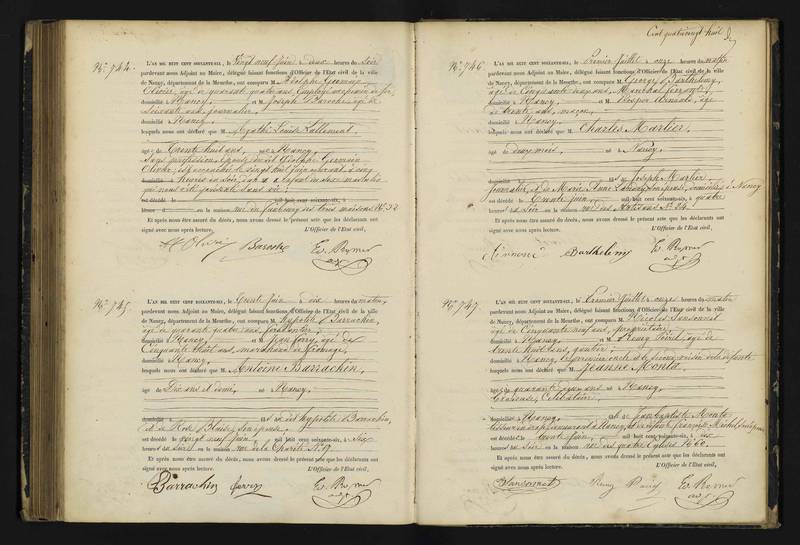 Cent quatre vingt huit
N° 744.
L'AN MIL HUIT CENT SOIXANTE-SIX, le Vingt neuf juin à deux heures du soir
pardevant nous Adjoint au Maire, délégué faisant fonctions d'Officier de l'Etat civil de la ville
de Nancy, département de la Meurthe, ont comparu M. Adolphe Germain
Olivier, âgé de quarante quatre ans, Employé au chemin de fer,
domicilié à Nancy, et M. Joseph Baroche, âgé de
soixante ans, journalier,
domicilié à Nancy,
lesquels nous ont déclaré que M. Agathe Louise Lallement,
âgé de Trente huit ans, né à Nancy,
Sans profession, épouse du dit Adolphe Germain
Olivier, est accouchée le vingt huit juin
heures du soir, d'un enfant du sexe masculin
qui nous a été présenté sans vie.
est décédé le mil huit cent soixante-six, à
heures d en la maison rue du faubourg des trois maisons N° 32
Et après nous être assuré du décès, nous avons dressé le présent acte que les déclarants ont
signé avec nous après lecture. L'Officier de l'Etat civil,
Olivier Baroche
N° 745.
L'AN MIL HUIT CENT SOIXANTE-SIX, le Trente juin à dix heures du matin,
pardevant nous Adjoint au Maire, délégué faisant fonctions d'Officier de l'Etat civil de la ville
de Nancy, département de la Meurthe, ont comparu M. Hypolite Barrachin,
âgé de quarante quatre ans, ferblantier,
domicilié à Nancy, et M. Jean ferry, âgé de
Cinquante huit ans, marchand de
domicilié à Nancy,
lesquels nous ont déclaré que M. Antoine Barrachin,
âgé de Dix ans et demi, né à Nancy,
domicilié à fils du dit Hypolite Barrachin,
et de Rose Blaise, son épouse,
est décédé le vingt neuf juin mil huit cent soixante-six, à six
heures du soir en la maison rue de la Charité N° 19
Et après nous être assuré du décès, nous avons dressé le présent acte que les déclarants ont
signé avec nous après lecture. L'Officier de l'Etat civil,
Barrachin ferry
N° 746.
L'AN MIL HUIT CENT SOIXANTE-SIX, le Premier Juillet à onze heures du matin
pardevant nous Adjoint au Maire, délégué faisant fonctions d'Officier de l'Etat civil de la ville
de Nancy, département de la Meurthe, ont comparu M. Georges Barthelemy,
âgé de Cinquante cinq ans, Maréchal ferrant,
domicilié à Nancy, et M. Prosper
de trente ans, maçon,
domicilié à Nancy,
lesquels nous ont déclaré que M. Charles Martier,
âgé de deux mois, né à Nancy,
fils de Joseph Martier,
journalier, et de Marie Anne son épouse, domiciliés à Nancy
est décédé le Trente juin mil huit cent soixante-six, à quatre
heures du soir en la maison rue des Artisans N° 24
Et après nous être assuré du décès, nous avons dressé le présent acte que les déclarants ont
signé avec nous après lecture. L'Officier de l'Etat civil,
Barthelemy
N° 747.
L'AN MIL HUIT CENT SOIXANTE-SIX, le Premier Juillet à onze heures du matin
pardevant nous Adjoint au Maire, délégué faisant fonctions d'Officier de l'Etat civil de la ville
de Nancy, département de la Meurthe, ont comparu M. Nicolas Vansonnet
âgé de Cinquante neuf ans, propriétaire,
domicilié à Nancy, et M. Remy âgé de
trente huit ans, gantier,
domicilié à Nancy, le premier oncle et le second voisin de la défunte
lesquels nous ont déclaré que M. Jeanne Monta
âgé de quarante cinq ans né à Nancy,
Brodeuse, Célibataire,
domicilié à Nancy, fille de Jean Baptiste Monta
est décédé le trente juin mil huit cent soixante-six, à
heures du soir en la maison rue des quatre Eglises N° 60.
Et après nous être assuré du décès, nous avons dressé le présent acte que les déclarants ont
signé avec nous après lecture. L'Officier de l'Etat civil,
Vansonnet Remy